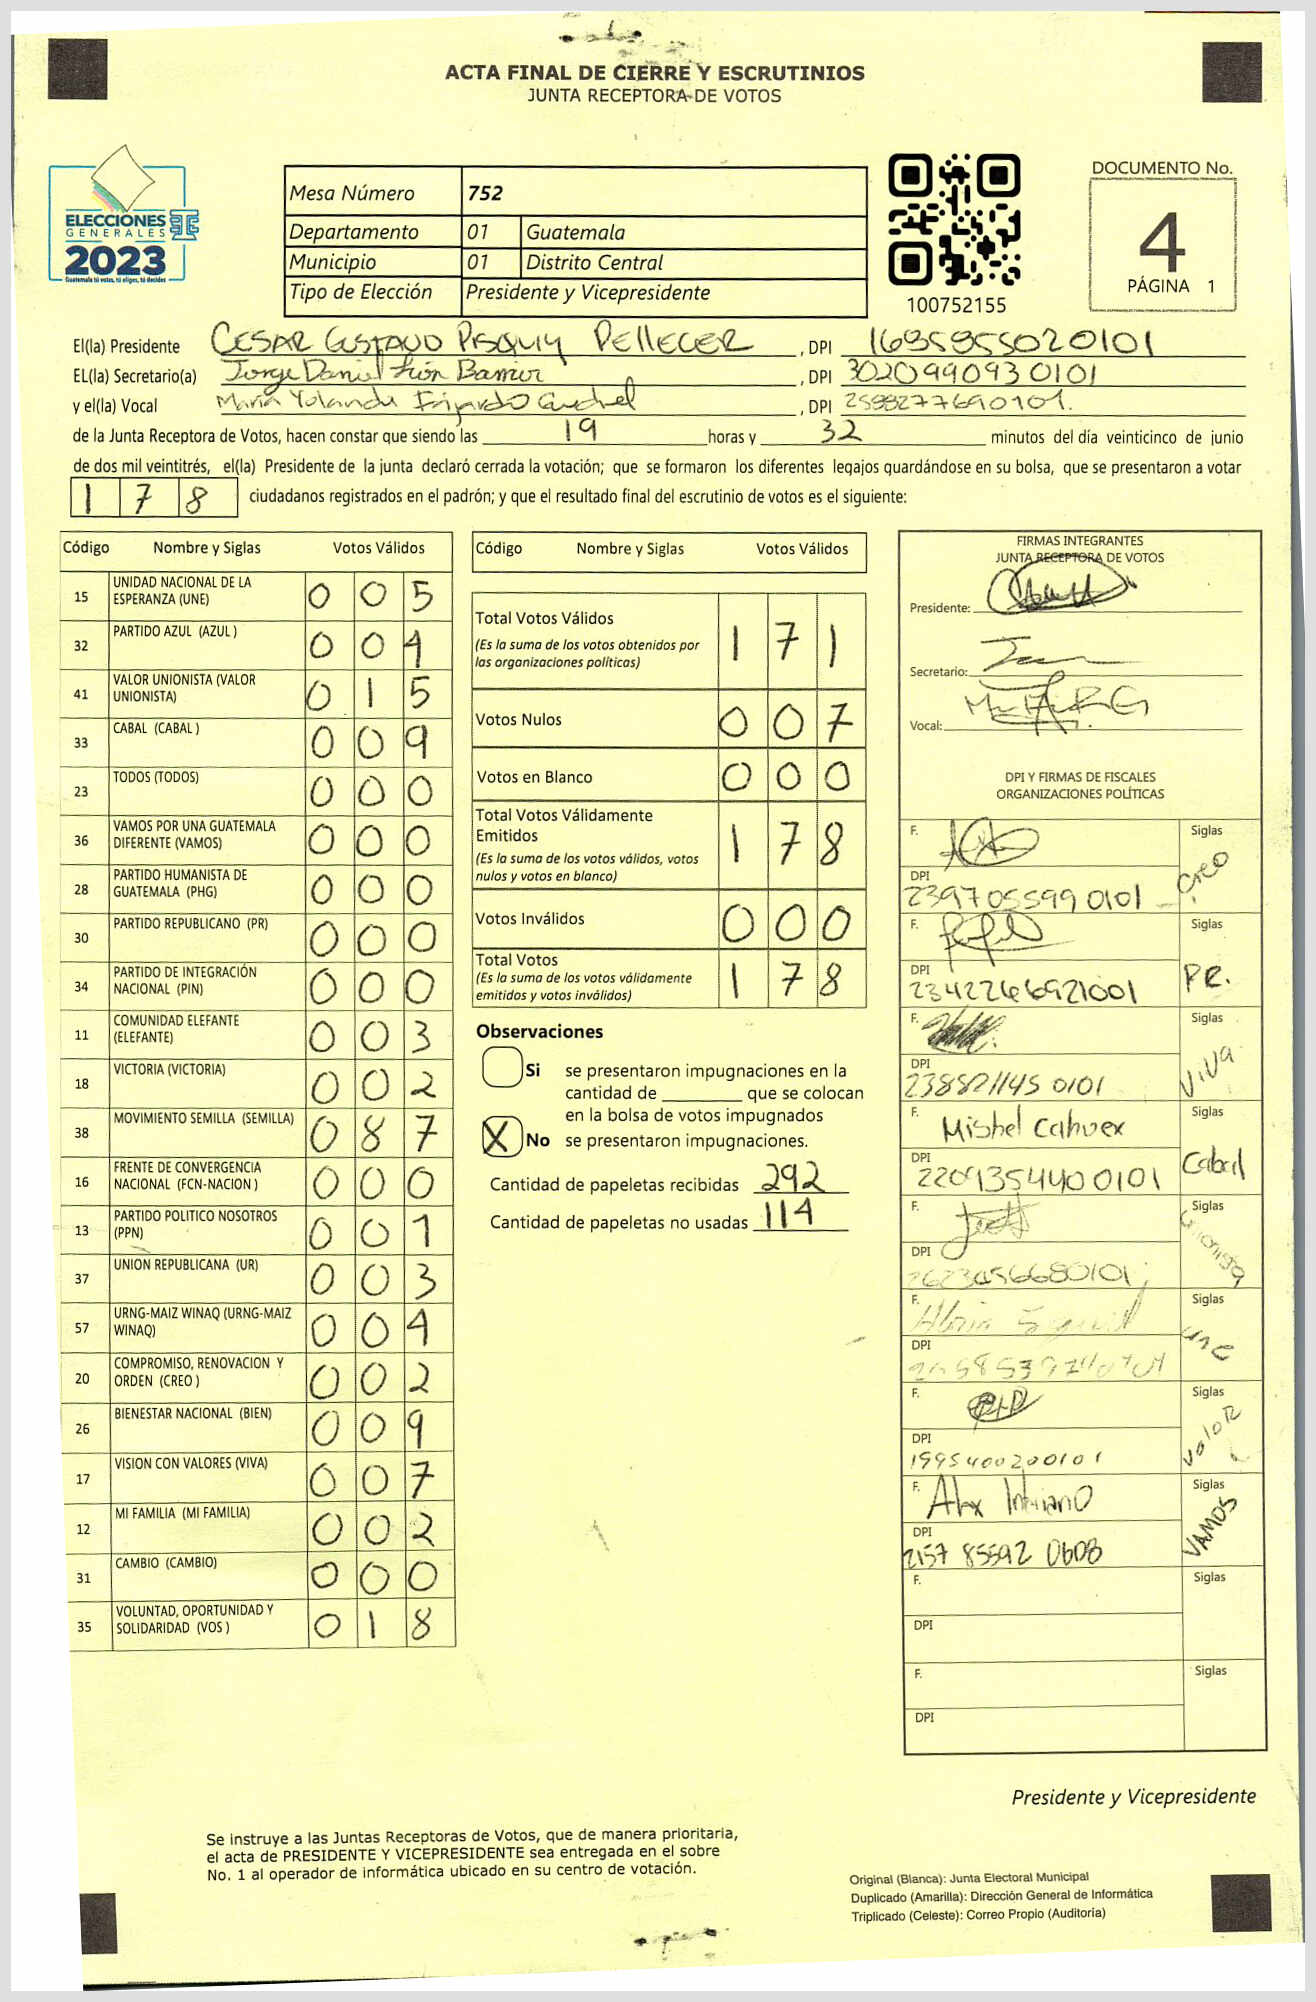 ACTA FINAL DE CIERRE Y ESCRUTINIOS
JUNTA RECEPTORA DE VOTOS
ELECCIONES
GENERALES
2023
Guatemala tú votas, tú eliges, tú decides
Mesa Número 752
Departamento 01 Guatemala
Municipio 01 Distrito Central
Tipo de Elección Presidente y Vicepresidente
100752155
DOCUMENTO No.
4
PÁGINA 1
El(la) Presidente CESAR GUSTAVO PISQUIY PELLECER , DPI 1695955020101
EL(la) Secretario(a) Jorge Daniel , DPI 3020990930101
y el(la) Vocal María Yolanda Fajardo , DPI 2598277690101.
de la Junta Receptora de Votos, hacen constar que siendo las 19 horas y 32 minutos del día veinticinco de junio
de dos mil veintitrés, el(la) Presidente de la junta declaró cerrada la votación; que se formaron los diferentes legajos guardándose en su bolsa, que se presentaron a votar
1 7 8 ciudadanos registrados en el padrón; y que el resultado final del escrutinio de votos es el siguiente:
Código Nombre y Siglas Votos Válidos
15 UNIDAD NACIONAL DE LA ESPERANZA (UNE) 0 0 5
32 PARTIDO AZUL (AZUL ) 0 0 4
41 VALOR UNIONISTA (VALOR UNIONISTA) 0 1 5
33 CABAL (CABAL ) 0 0 9
23 TODOS (TODOS) 0 0 0
36 VAMOS POR UNA GUATEMALA DIFERENTE (VAMOS) 0 0 0
28 PARTIDO HUMANISTA DE GUATEMALA (PHG) 0 0 0
30 PARTIDO REPUBLICANO (PR) 0 0 0
34 PARTIDO DE INTEGRACIÓN NACIONAL (PIN) 0 0 0
11 COMUNIDAD ELEFANTE (ELEFANTE) 0 0 3
18 VICTORIA (VICTORIA) 0 0 2
38 MOVIMIENTO SEMILLA (SEMILLA) 0 8 7
16 FRENTE DE CONVERGENCIA NACIONAL (FCN-NACION ) 0 0 0
13 PARTIDO POLITICO NOSOTROS (PPN) 0 0 1
37 UNION REPUBLICANA (UR) 0 0 3
57 URNG-MAIZ WINAQ (URNG-MAIZ WINAQ) 0 0 4
20 COMPROMISO, RENOVACION Y ORDEN (CREO ) 0 0 2
26 BIENESTAR NACIONAL (BIEN) 0 0 9
17 VISION CON VALORES (VIVA) 0 0 7
12 MI FAMILIA (MI FAMILIA) 0 0 2
31 CAMBIO (CAMBIO) 0 0 0
35 VOLUNTAD, OPORTUNIDAD Y SOLIDARIDAD (VOS ) 0 1 8
Código Nombre y Siglas Votos Válidos
Total Votos Válidos 1 7 1
(Es la suma de los votos obtenidos por
las organizaciones políticas)
Votos Nulos 0 0 7
Votos en Blanco 0 0 0
Total Votos Válidamente
Emitidos 1 7 8
(Es la suma de los votos válidos, votos
nulos y votos en blanco)
Votos Inválidos 0 0 0
Total Votos 1 7 8
(Es la suma de los votos válidamente
emitidos y votos inválidos)
Observaciones
Si se presentaron impugnaciones en la
cantidad de ________ que se colocan
en la bolsa de votos impugnados
X No se presentaron impugnaciones.
Cantidad de papeletas recibidas 292
Cantidad de papeletas no usadas 114
FIRMAS INTEGRANTES
JUNTA RECEPTORA DE VOTOS
Presidente:
Secretario:
Vocal:
DPI Y FIRMAS DE FISCALES
ORGANIZACIONES POLÍTICAS
F. Siglas
DPI Creo
2397055990101
F. Siglas
DPI PR.
2342266921001
F. Siglas
DPI VIVA
2388211450101
F. Mishel Cahuex Siglas
DPI Cabal
2209354400101
F. Siglas
DPI Unionista
2623056680101
F. Siglas
DPI UNE
F. Siglas
DPI Valor
1995400200101
F. Alex Siglas
DPI VAMOS
2157 85592 0608
F. Siglas
DPI
F. Siglas
DPI
Presidente y Vicepresidente
Se instruye a las Juntas Receptoras de Votos, que de manera prioritaria,
el acta de PRESIDENTE Y VICEPRESIDENTE sea entregada en el sobre
No. 1 al operador de informática ubicado en su centro de votación.
Original (Blanca): Junta Electoral Municipal
Duplicado (Amarilla): Dirección General de Informática
Triplicado (Celeste): Correo Propio (Auditoría)